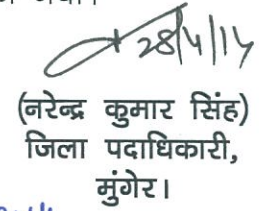 28/4/14
(नरेन्द्र कुमार सिंह)
जिला पदाधिकारी,
मुंगेर।